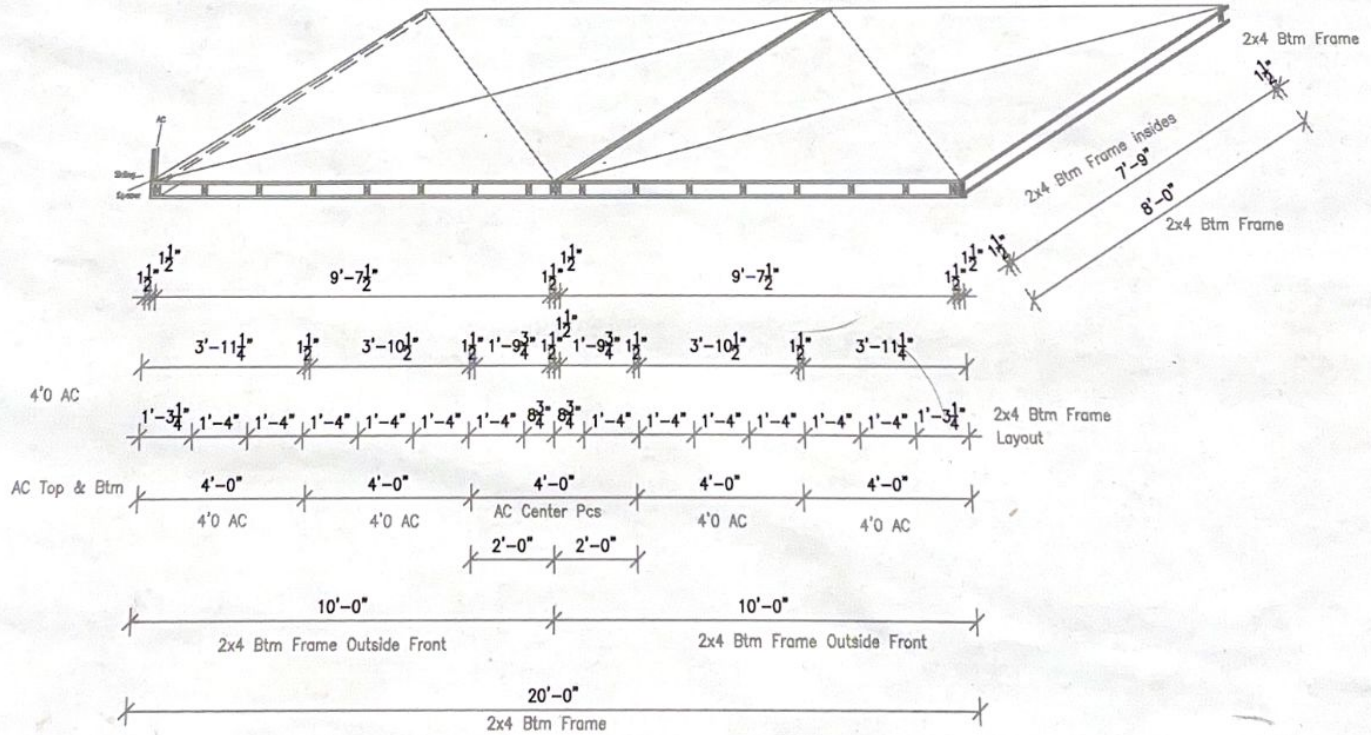 2x4 Btm Frame
1½"
AC
2x4 Btm Frame insides
7'-9"
8'-0"
2x4 Btm Frame
1½" 1½" 9'-7½" 1½" 1½" 9'-7½" 1½" 1½" 1½"
3'-11¼" 1½" 3'-10½" 1½" 1'-9¾" 1½" 1½" 1'-9¾" 1½" 3'-10½" 1½" 3'-11¼"
4'0 AC
1'-3¼" 1'-4" 1'-4" 1'-4" 1'-4" 1'-4" 1'-4" 8¾" 8¾" 1'-4" 1'-4" 1'-4" 1'-4" 1'-4" 1'-4" 1'-3¼" 2x4 Btm Frame
Layout
AC Top & Btm 4'-0" 4'-0" 4'-0" 4'-0" 4'-0"
4'0 AC 4'0 AC AC Center Pcs 4'0 AC 4'0 AC
2'-0" 2'-0"
10'-0" 10'-0"
2x4 Btm Frame Outside Front 2x4 Btm Frame Outside Front
20'-0"
2x4 Btm Frame